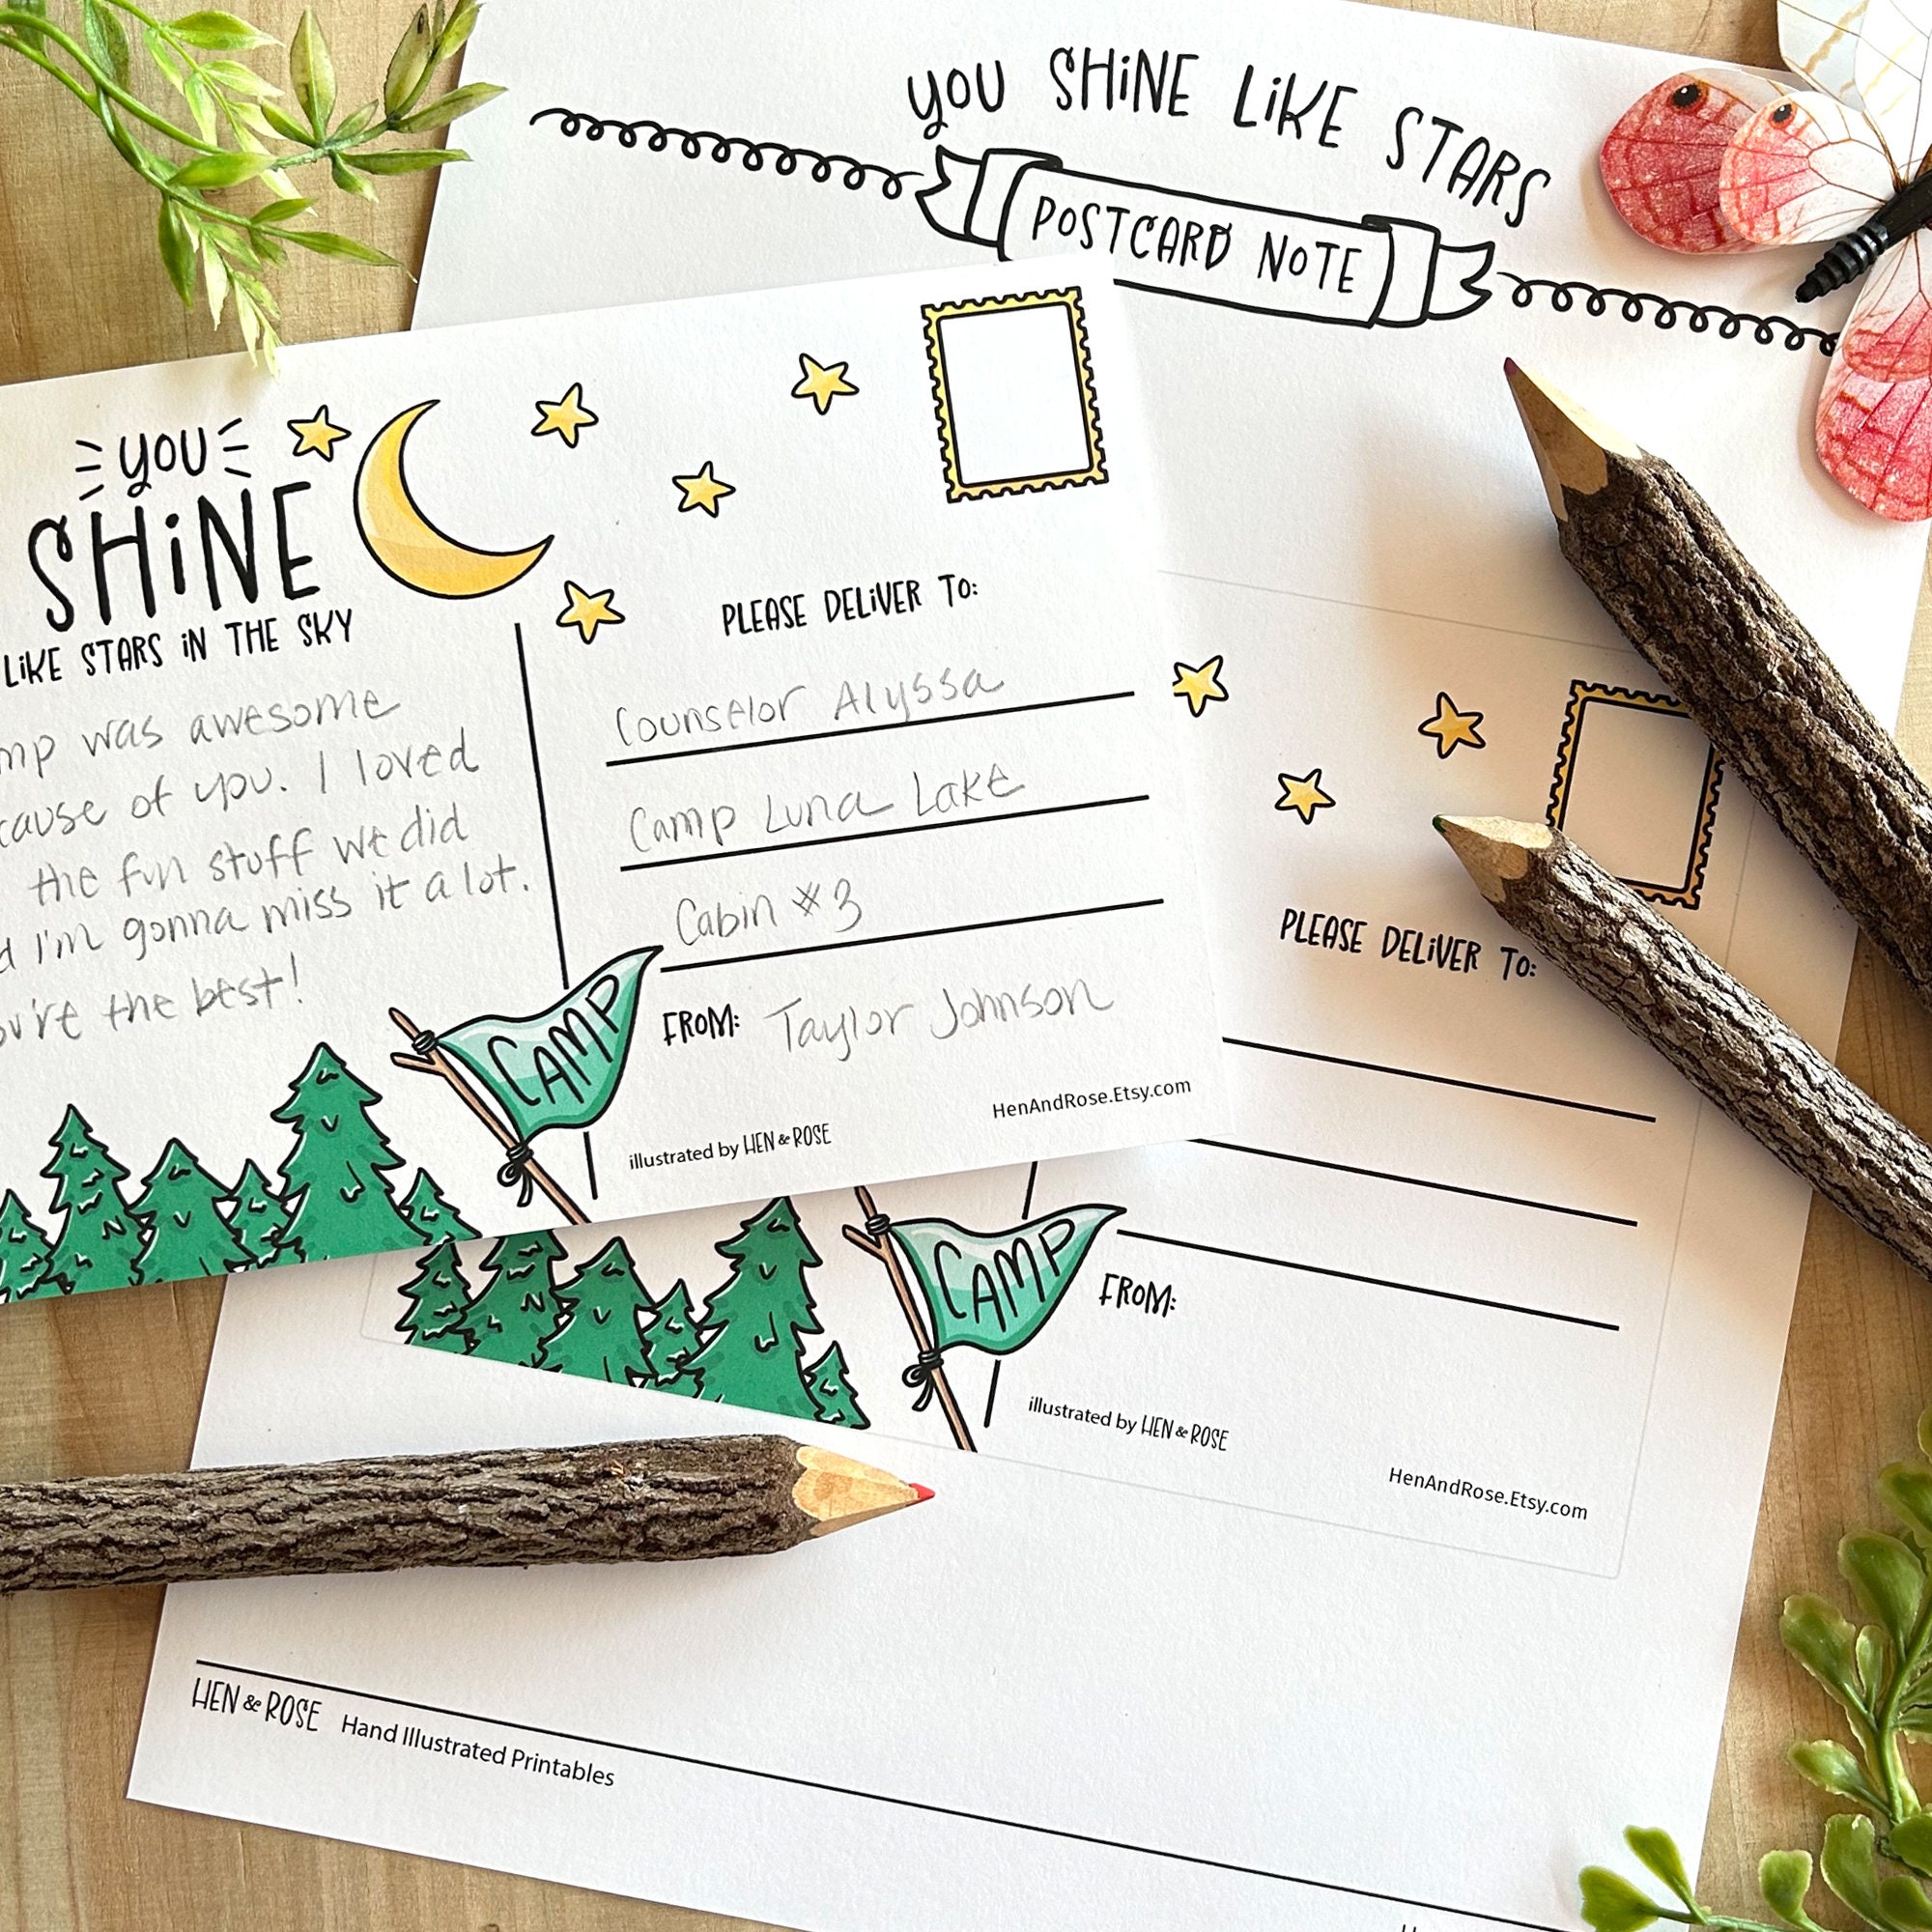 YOU SHINE LIKE STARS
POSTCARD NOTE
YOU
SHINE
LIKE STARS IN THE SKY
mp was awesome
cause of you. I loved
the fun stuff we did
d I'm gonna miss it a lot.
ou're the best!
PLEASE DELIVER TO:
Counselor Alyssa
Camp Luna Lake
Cabin #3
FROM: Taylor Johnson
CAMP
illustrated by HEN & ROSE
HenAndRose.Etsy.com
PLEASE DELIVER TO:
CAMP
FROM:
illustrated by HEN & ROSE
HenAndRose.Etsy.com
HEN & ROSE Hand Illustrated Printables